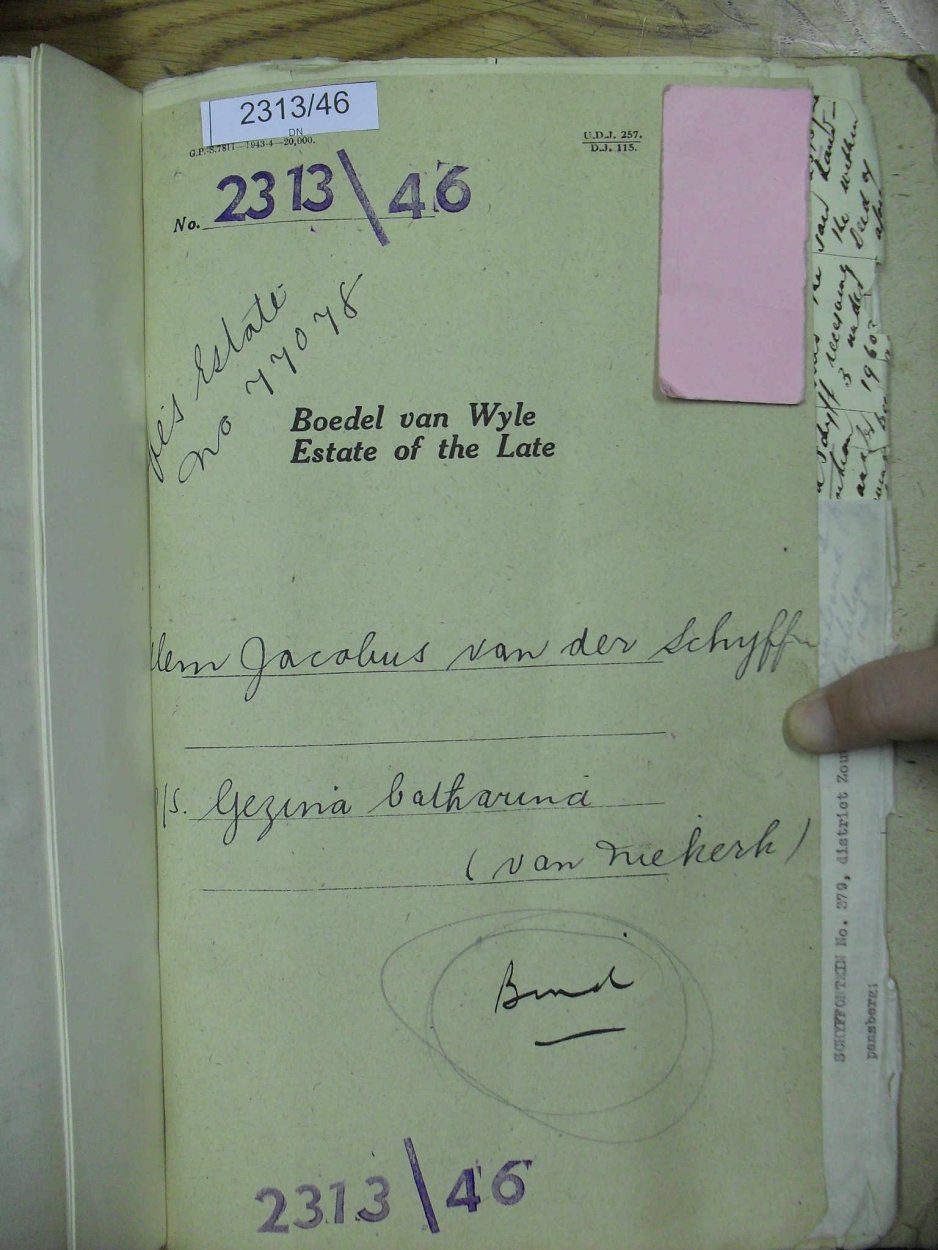 2313/46
DN
G.P.-S.7811—1943-4—20,000.
U.D.J. 257.
D.J. 115.
No. 2313\46
Estate
No 77078
Boedel van Wyle
Estate of the Late
llem Jacobus van der Schyff
/s. Gezina Catharina
(van Niekerk)
Bind
2313\46
the said
the within
Schyff receiving
Deed of
3 under
1960?
SCHYFFONTEIN No. 379, district Zou
pansberg;